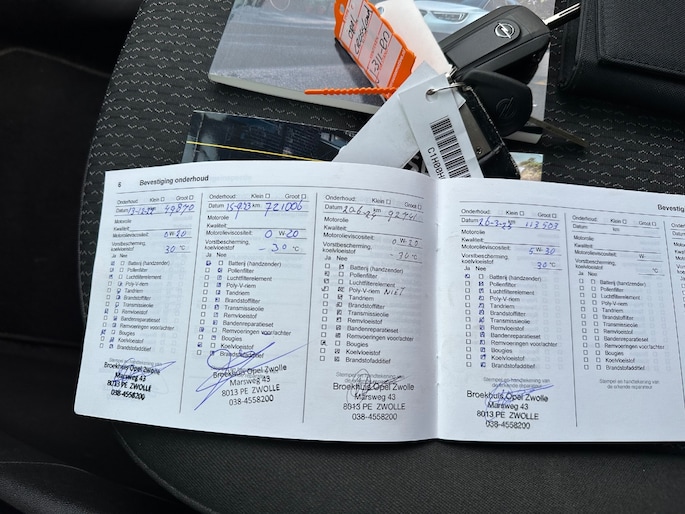 6 Bevestiging onderhoud
Onderhoud: Klein Groot
Datum 13-12-22 km 49870
Motorolie
Kwaliteit:
Motorolieviscositeit: 0 W 20
Vorstbescherming,
koelvloeistof 30 °C
Ja Nee
Batterij (handzender)
Pollenfilter
Luchtfilterelement
Poly-V-riem
Tandriem
Brandstoffilter
Transmissieolie
Remvloeistof
Bandenreparatieset
Remvoeringen voor/achter
Bougies
Koelvloeistof
Brandstofadditief
Stempel en handtekening van
Broekhuis Opel Zwolle
Marsweg 43
8013 PE ZWOLLE
038-4558200
Onderhoud: Klein Groot
Datum km 721006
Motorolie
Kwaliteit:
Motorolieviscositeit: 0 W 20
Vorstbescherming,
koelvloeistof -30 °C
Ja Nee
Batterij (handzender)
Pollenfilter
Luchtfilterelement
Poly-V-riem
Tandriem
Brandstoffilter
Transmissieolie
Remvloeistof
Bandenreparatieset
Remvoeringen voor/achter
Bougies
Koelvloeistof
Brandstofadditief
Broekhuis Opel Zwolle
Marsweg 43
8013 PE ZWOLLE
038-4558200
Onderhoud: Klein Groot
Datum km
Motorolie
Kwaliteit:
Motorolieviscositeit: 0 W 20
Vorstbescherming,
koelvloeistof °C
Ja Nee
Batterij (handzender)
Pollenfilter
Luchtfilterelement
Poly-V-riem NIET
Tandriem
Brandstoffilter
Transmissieolie
Remvloeistof
Bandenreparatieset
Remvoeringen voor/achter
Bougies
Koelvloeistof
Brandstofadditief
Broekhuis Opel Zwolle
Marsweg 43
8013 PE ZWOLLE
038-4558200
Onderhoud: Klein Groot
Datum 26-3-25 km 113503
Motorolie
Kwaliteit:
Motorolieviscositeit: 5 W 30
Vorstbescherming,
koelvloeistof 30 °C
Ja Nee
Batterij (handzender)
Pollenfilter
Luchtfilterelement
Poly-V-riem
Tandriem
Brandstoffilter
Transmissieolie
Remvloeistof
Bandenreparatieset
Remvoeringen voor/achter
Bougies
Koelvloeistof
Brandstofadditief
Stempel en handtekening van
Broekhuis Opel Zwolle
Marsweg 43
8013 PE ZWOLLE
038-4558200
Onderhoud: Klein Groot
Datum km
Motorolie
Kwaliteit:
Motorolieviscositeit: W
Vorstbescherming,
koelvloeistof
Ja Nee
Batterij (handzender)
Pollenfilter
Luchtfilterelement
Poly-V-riem
Tandriem
Brandstoffilter
Transmissieolie
Remvloeistof
Bandenreparatieset
Remvoeringen voor/achter
Bougies
Koelvloeistof
Brandstofadditief
Stempel en handtekening van